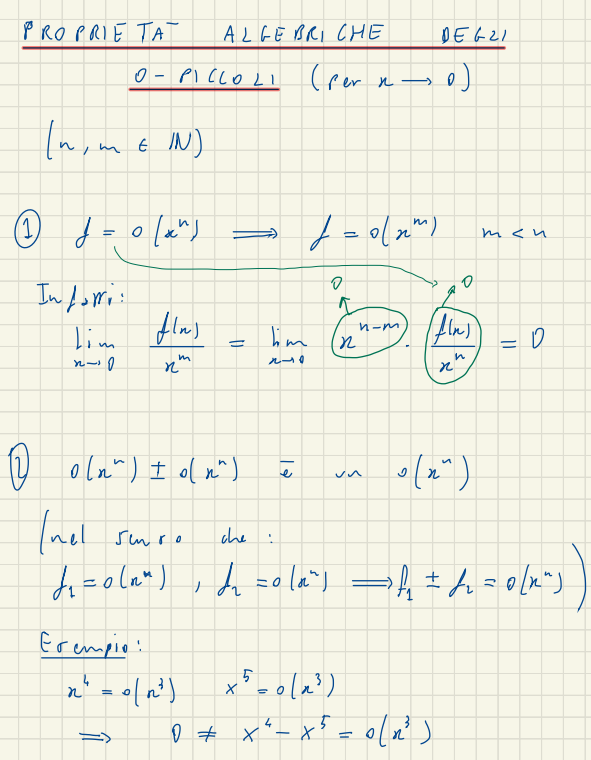 PROPRIETA' ALGEBRICHE DEGLI
O-PICCOLI (per x → 0)
(n, m ∈ ℕ)
① f = o(xⁿ) ⟹ f = o(xᵐ) m < n
Infatti:
0 0
lim_{x→0} f(x)/xᵐ = lim_{x→0} xⁿ⁻ᵐ · f(x)/xⁿ = 0
② o(xⁿ) ± o(xⁿ) è un o(xⁿ)
(nel senso che :
f₁ = o(xⁿ) , f₂ = o(xⁿ) ⟹ f₁ ± f₂ = o(xⁿ))
Esempio:
x⁴ = o(x³) x⁵ = o(x³)
⟹ 0 ≠ x⁴ - x⁵ = o(x³)